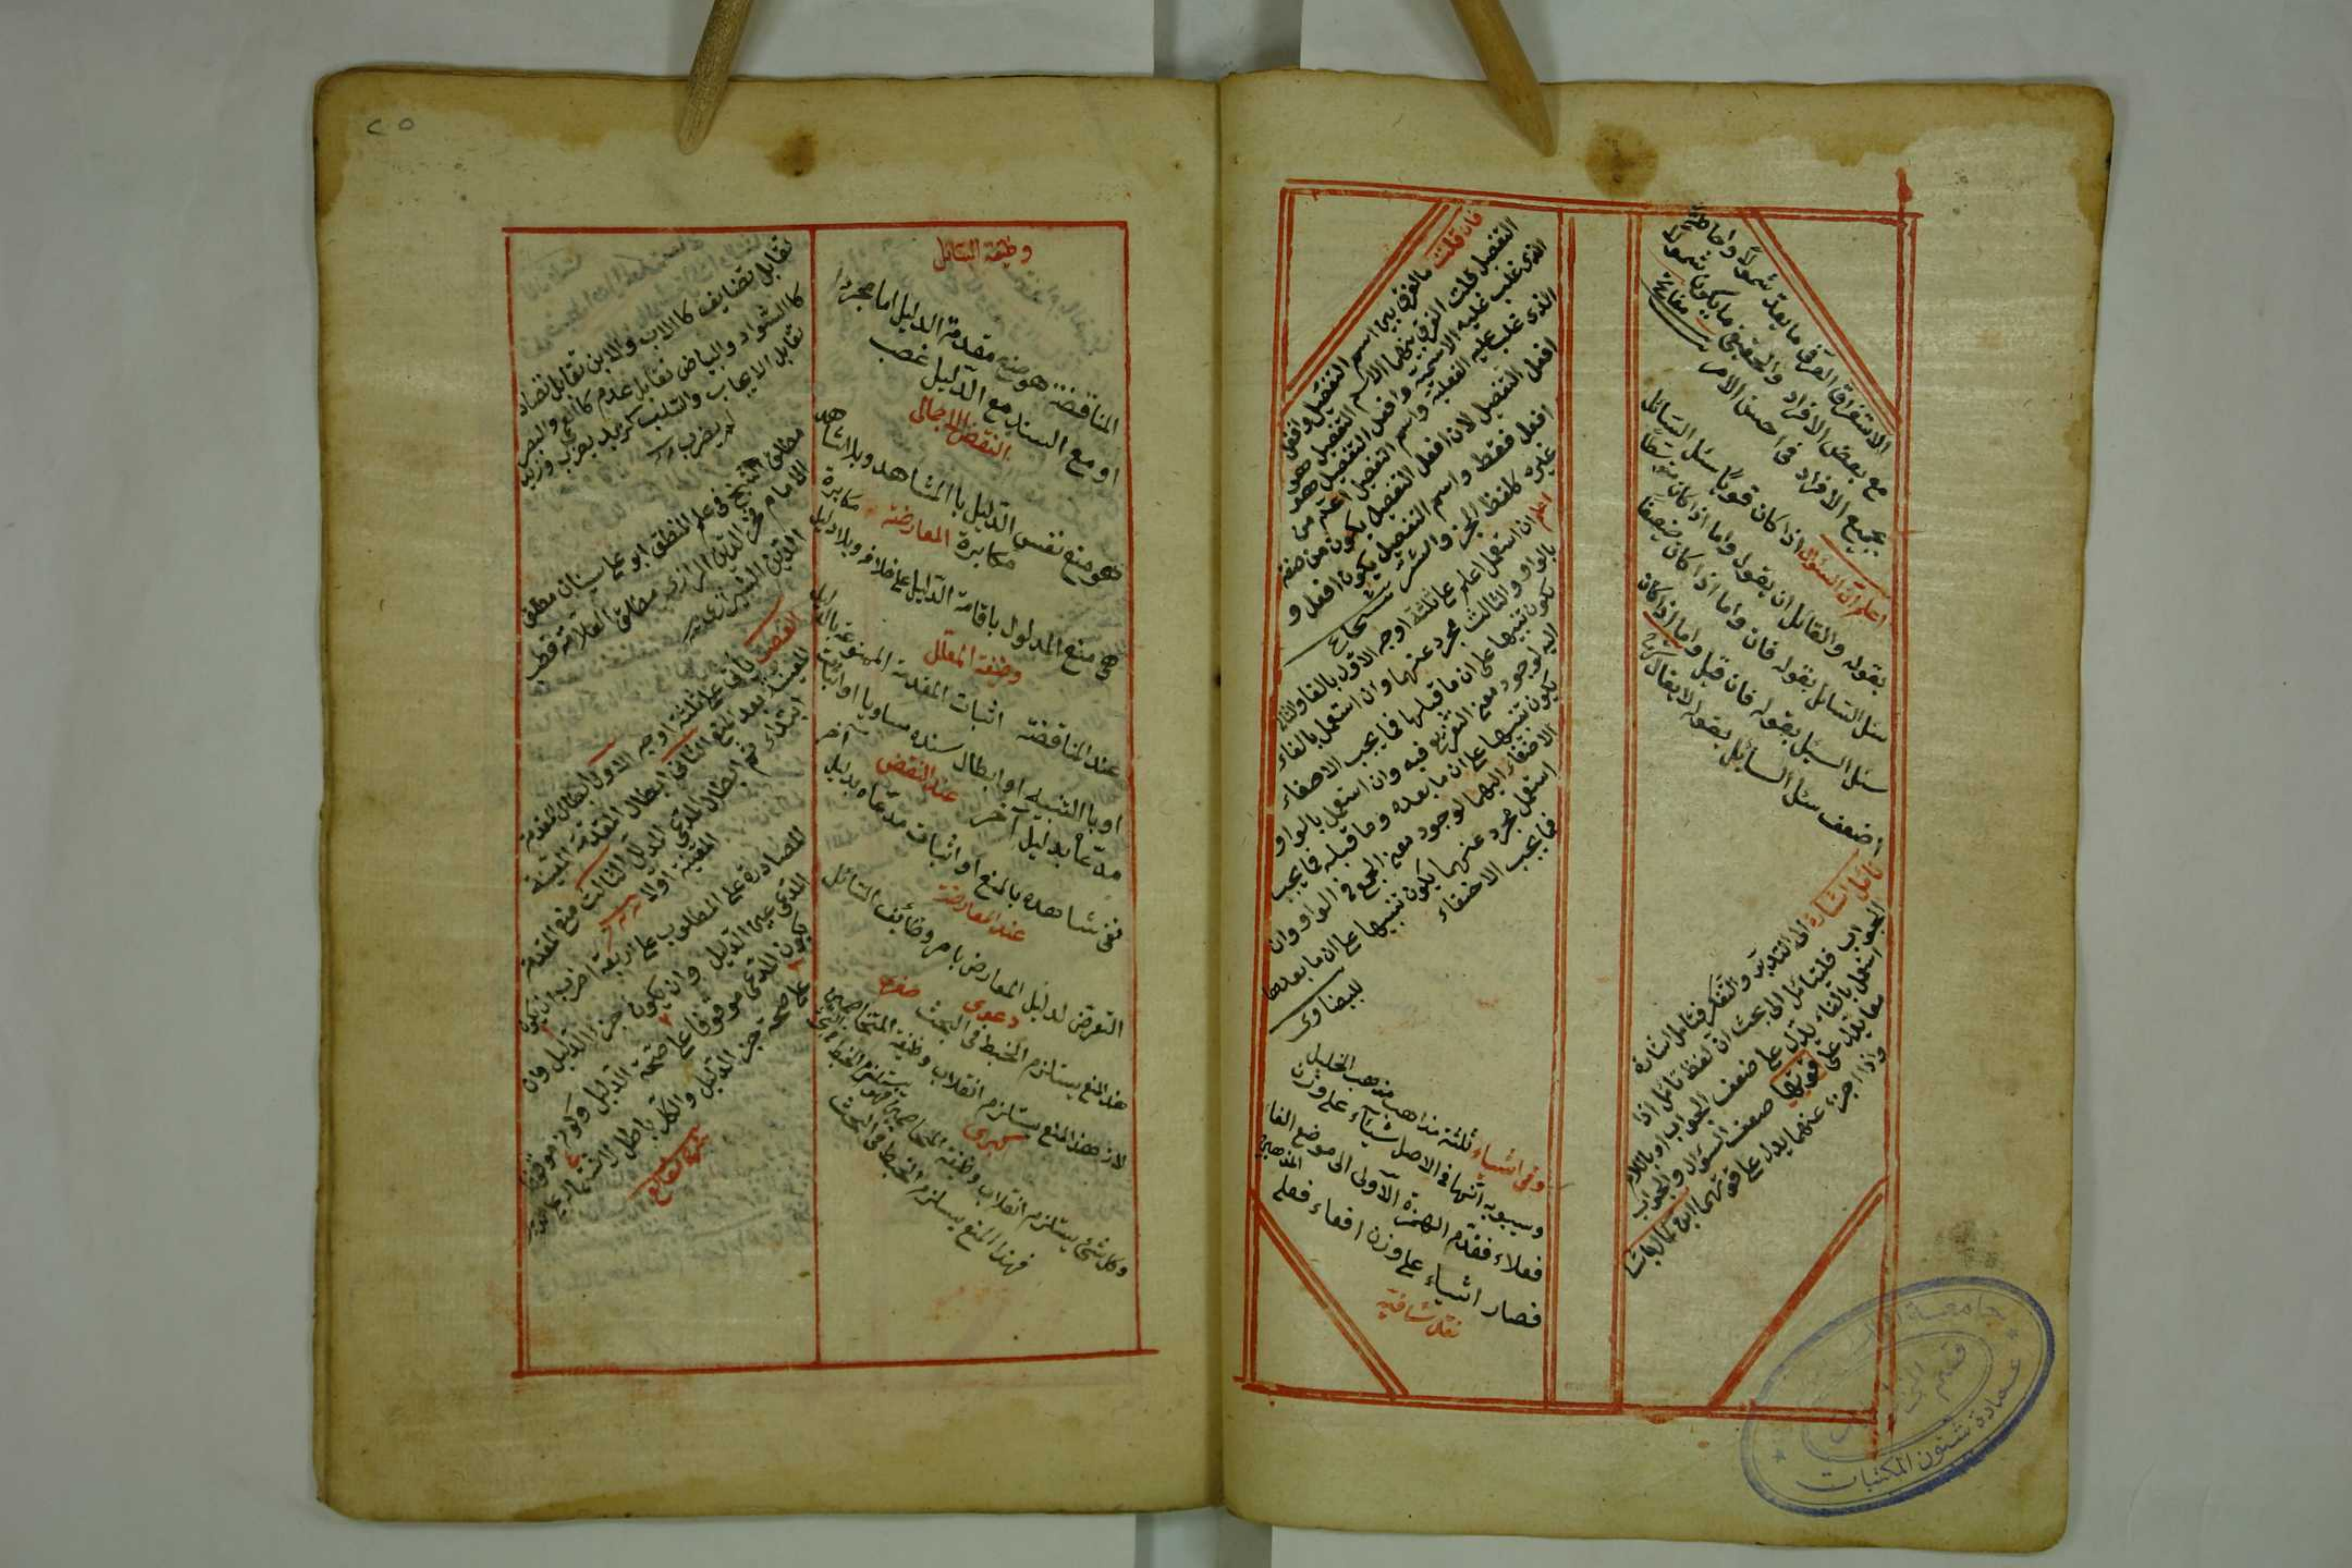 الاستغراق العرفى ما يعد شمولا واحاطة
مع بعض الافراد والحقيقى ما يكون شمولا
بجميع الافراد فى احسن الامر
اعلم ان السؤال اذا كان قويا سئل السائل
بقوله والقائل ان يقول واما اذا كان متوسطا
سئل السائل بقوله فان واما اذا كان ضعيفا
سئل السئل بقوله فان قيل واما اذا كان
اضعف سئل السائل بقوله لا يقال
تأمل اشارة الى التدبر والتفكر فتأمل اشارة
الجواب فليتأمل الى بحث ان لفظ تأمل اذا
استعمل بالفاء يدل على ضعف الجواب او باللام
معا يدل على قوتها ضعف السؤال والجواب
واذا جرد عنهما يدل على قوتهما ابن كمال پاشا
فان قلت ما الفرق بين اسم التفضيل وافعل
التفضيل قلت الفرق بينهما الاسم التفضيل هو
الذى غلب عليه الاسمية وافعل التفضيل هو
الذى غلب عليه الفعلية واسم التفضيل اعم من
افعل التفضيل لان افعل التفضيل يكون من صفة
افعل فقط واسم التفضيل يكون افعل و
غيره كلفظ الخير والشر
اعلم ان استعمل اعلم على ثلثة اوجه الاول بالفاء والثانى
بالواو والثالث مجرد عنهما وان استعمل بالفاء
يكون تنبيها على ان ما قبلها فما يجب الاصغاء
اليه لوجود معنى التفريع فيه وان استعمل بالواو
يكون تنبيها على ان ما بعده وما قبله فما يجب
الاصغاء اليهما لوجود معنى الجمع فى الواو وان
استعمل مجرد عنهما يكون تنبيها على ان ما بعدها
فما يجب الاصغاء
للبيضاوى
وفى اشياء ثلثة مذاهب مذهب الخليل
وسيبويه انها فى الاصل شيئاء على وزن
فعلاء فقدم الهمزة الاولى الى موضع الفاء
فصار اشياء على وزن افعاء فعلى
نقل شافية
وظيفة السائل
المناقضة هو منع مقدمة الدليل اما مجردا
او مع السند مع الدليل غصب
النقض الاجمالى
هو منع نفس الدليل بالمشاهد وبلا شاهد
مكابرة المعارضة مكابرة
هى منع المدلول باقامة الدليل على خلافه وبلا دليل
وظيفة المعلل
عند المناقضة اثبات المقدمة الممنوعة بالدليل
او بالتنبيه او ابطال سنده مساويا او اثبات
مدعاه بدليل آخر عند النقض آخر
نفى شاهده بالمنع او اثبات مدعاه بدليل
عند المعارضة
التعرض لدليل المعارض بامر وظائف السائل
دعوى صغرى
هذا المنع يستلزم الخبط فى البحث
لان هذا المنع يستلزم انقلاب وظيفة المتخاصمين
كبرى
وكل شئ يستلزم انقلاب وظيفة المتخاصمين فهو يستلزم الخبط فى البحث
فهذا المنع يستلزم الخبط فى البحث
تقابل تضايف كالاب والابن تقابل تضاد
كالسواد والبياض تقابل عدم كالعمى والبصر
تقابل الايجاب والسلب كزيد يضرب وزيد
لم يضرب
مطلق الشيخ فى علم المنطق ابو على سينا ان مطلق
الامام فخر الدين الرازى مطلق العلامة قطب
الدين الشيرازى
الغصب يأتى على ثلثة اوجه الاول ابطال المقدمة
المعينة بعد المنع الثانى ابطال المقدمة المعينة
ابتداء ثم ابطال المدعى الدليل الثالث منع المقدمة
المعينة اولا
المصادرة على المطلوب على اربعة اضرب ان يكون
المدعى عين الدليل وان يكون جزء الدليل وان
يكون المدعى موقوفا على صحة الدليل وكونه موقوفا
على صحة جزء الدليل والكل باطل لاشتماله على الدور